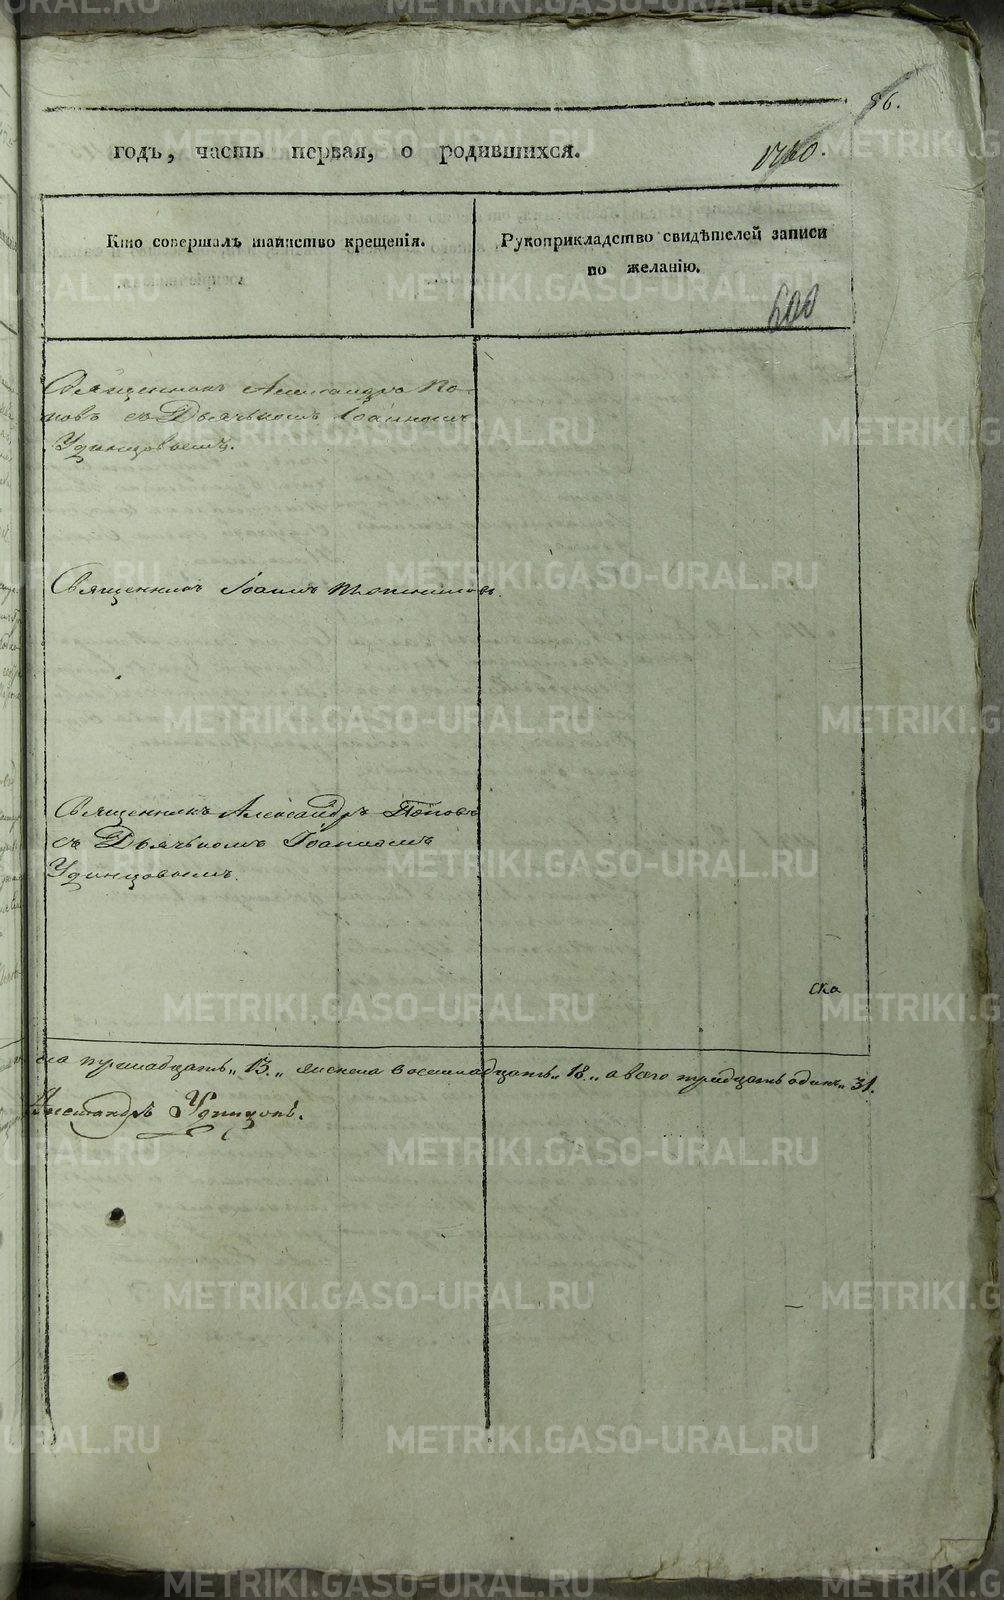 86.
годъ, часть первая, о родившихся.
Кто совершалъ таинство крещенія.
Рукоприкладство свидѣтелей записи
по желанію.
600
Священникъ Александръ По-
повъ съ Дьячкомъ Іоанномъ
Удинцовымъ.
Священникъ Іоаннъ
Священникъ Александръ Поповъ
съ Дьячкомъ Іоанномъ
Удинцовымъ.
ска
на тринадцать „13„ женска восемнадцать „18„ а всего тридцать одинъ „31.
Александръ Удинцовъ.
METRIKI.GASO-URAL.RU